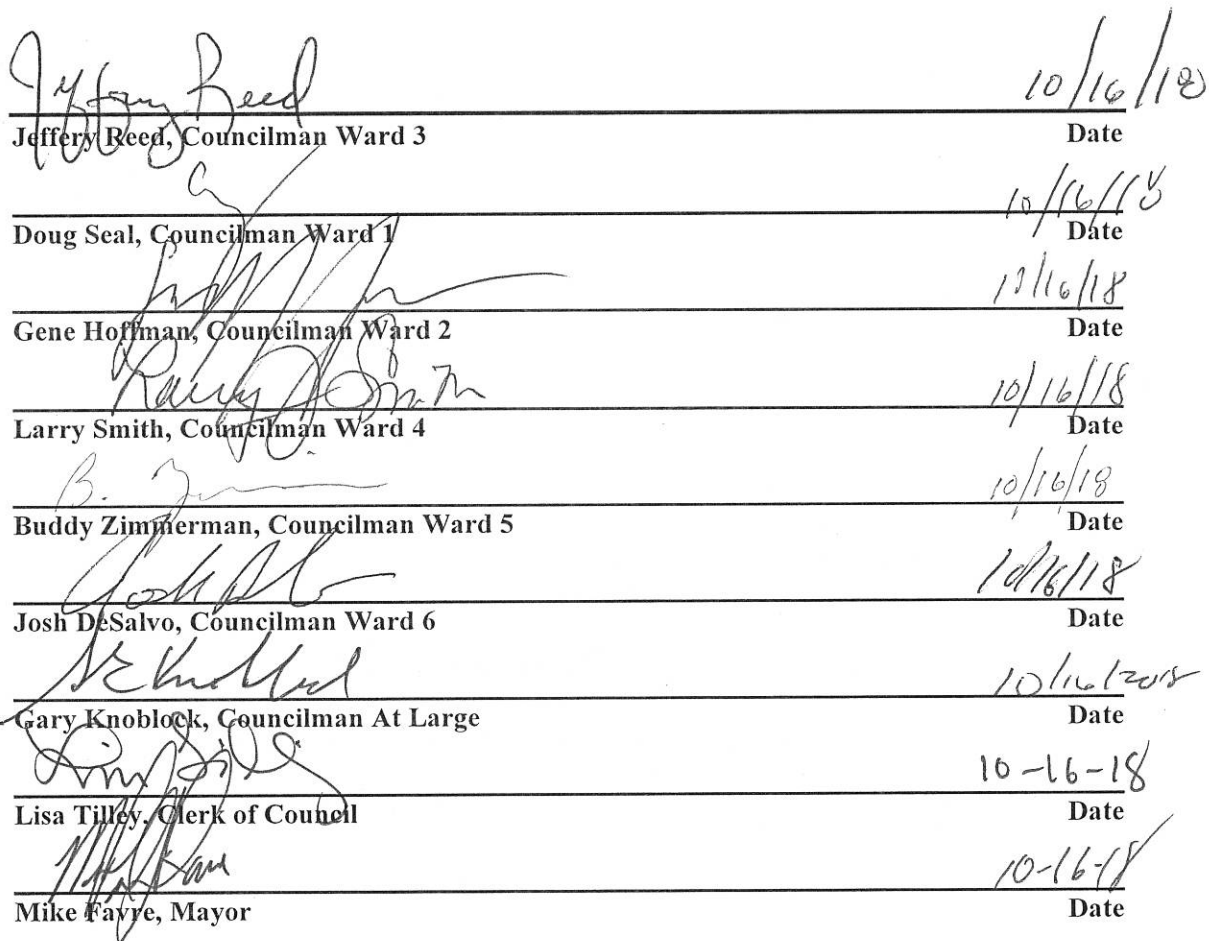 Jeffery Reed 10/16/18
Jeffery Reed, Councilman Ward 3 Date
10/16/18
Doug Seal, Councilman Ward 1 Date
10/16/18
Gene Hoffman, Councilman Ward 2 Date
Larry Smith 10/16/18
Larry Smith, Councilman Ward 4 Date
B. 10/16/18
Buddy Zimmerman, Councilman Ward 5 Date
Josh 10/16/18
Josh DeSalvo, Councilman Ward 6 Date
10/16/2018
Gary Knoblock, Councilman At Large Date
10-16-18
Lisa Tilley, Clerk of Council Date
10-16-18
Mike Favre, Mayor Date